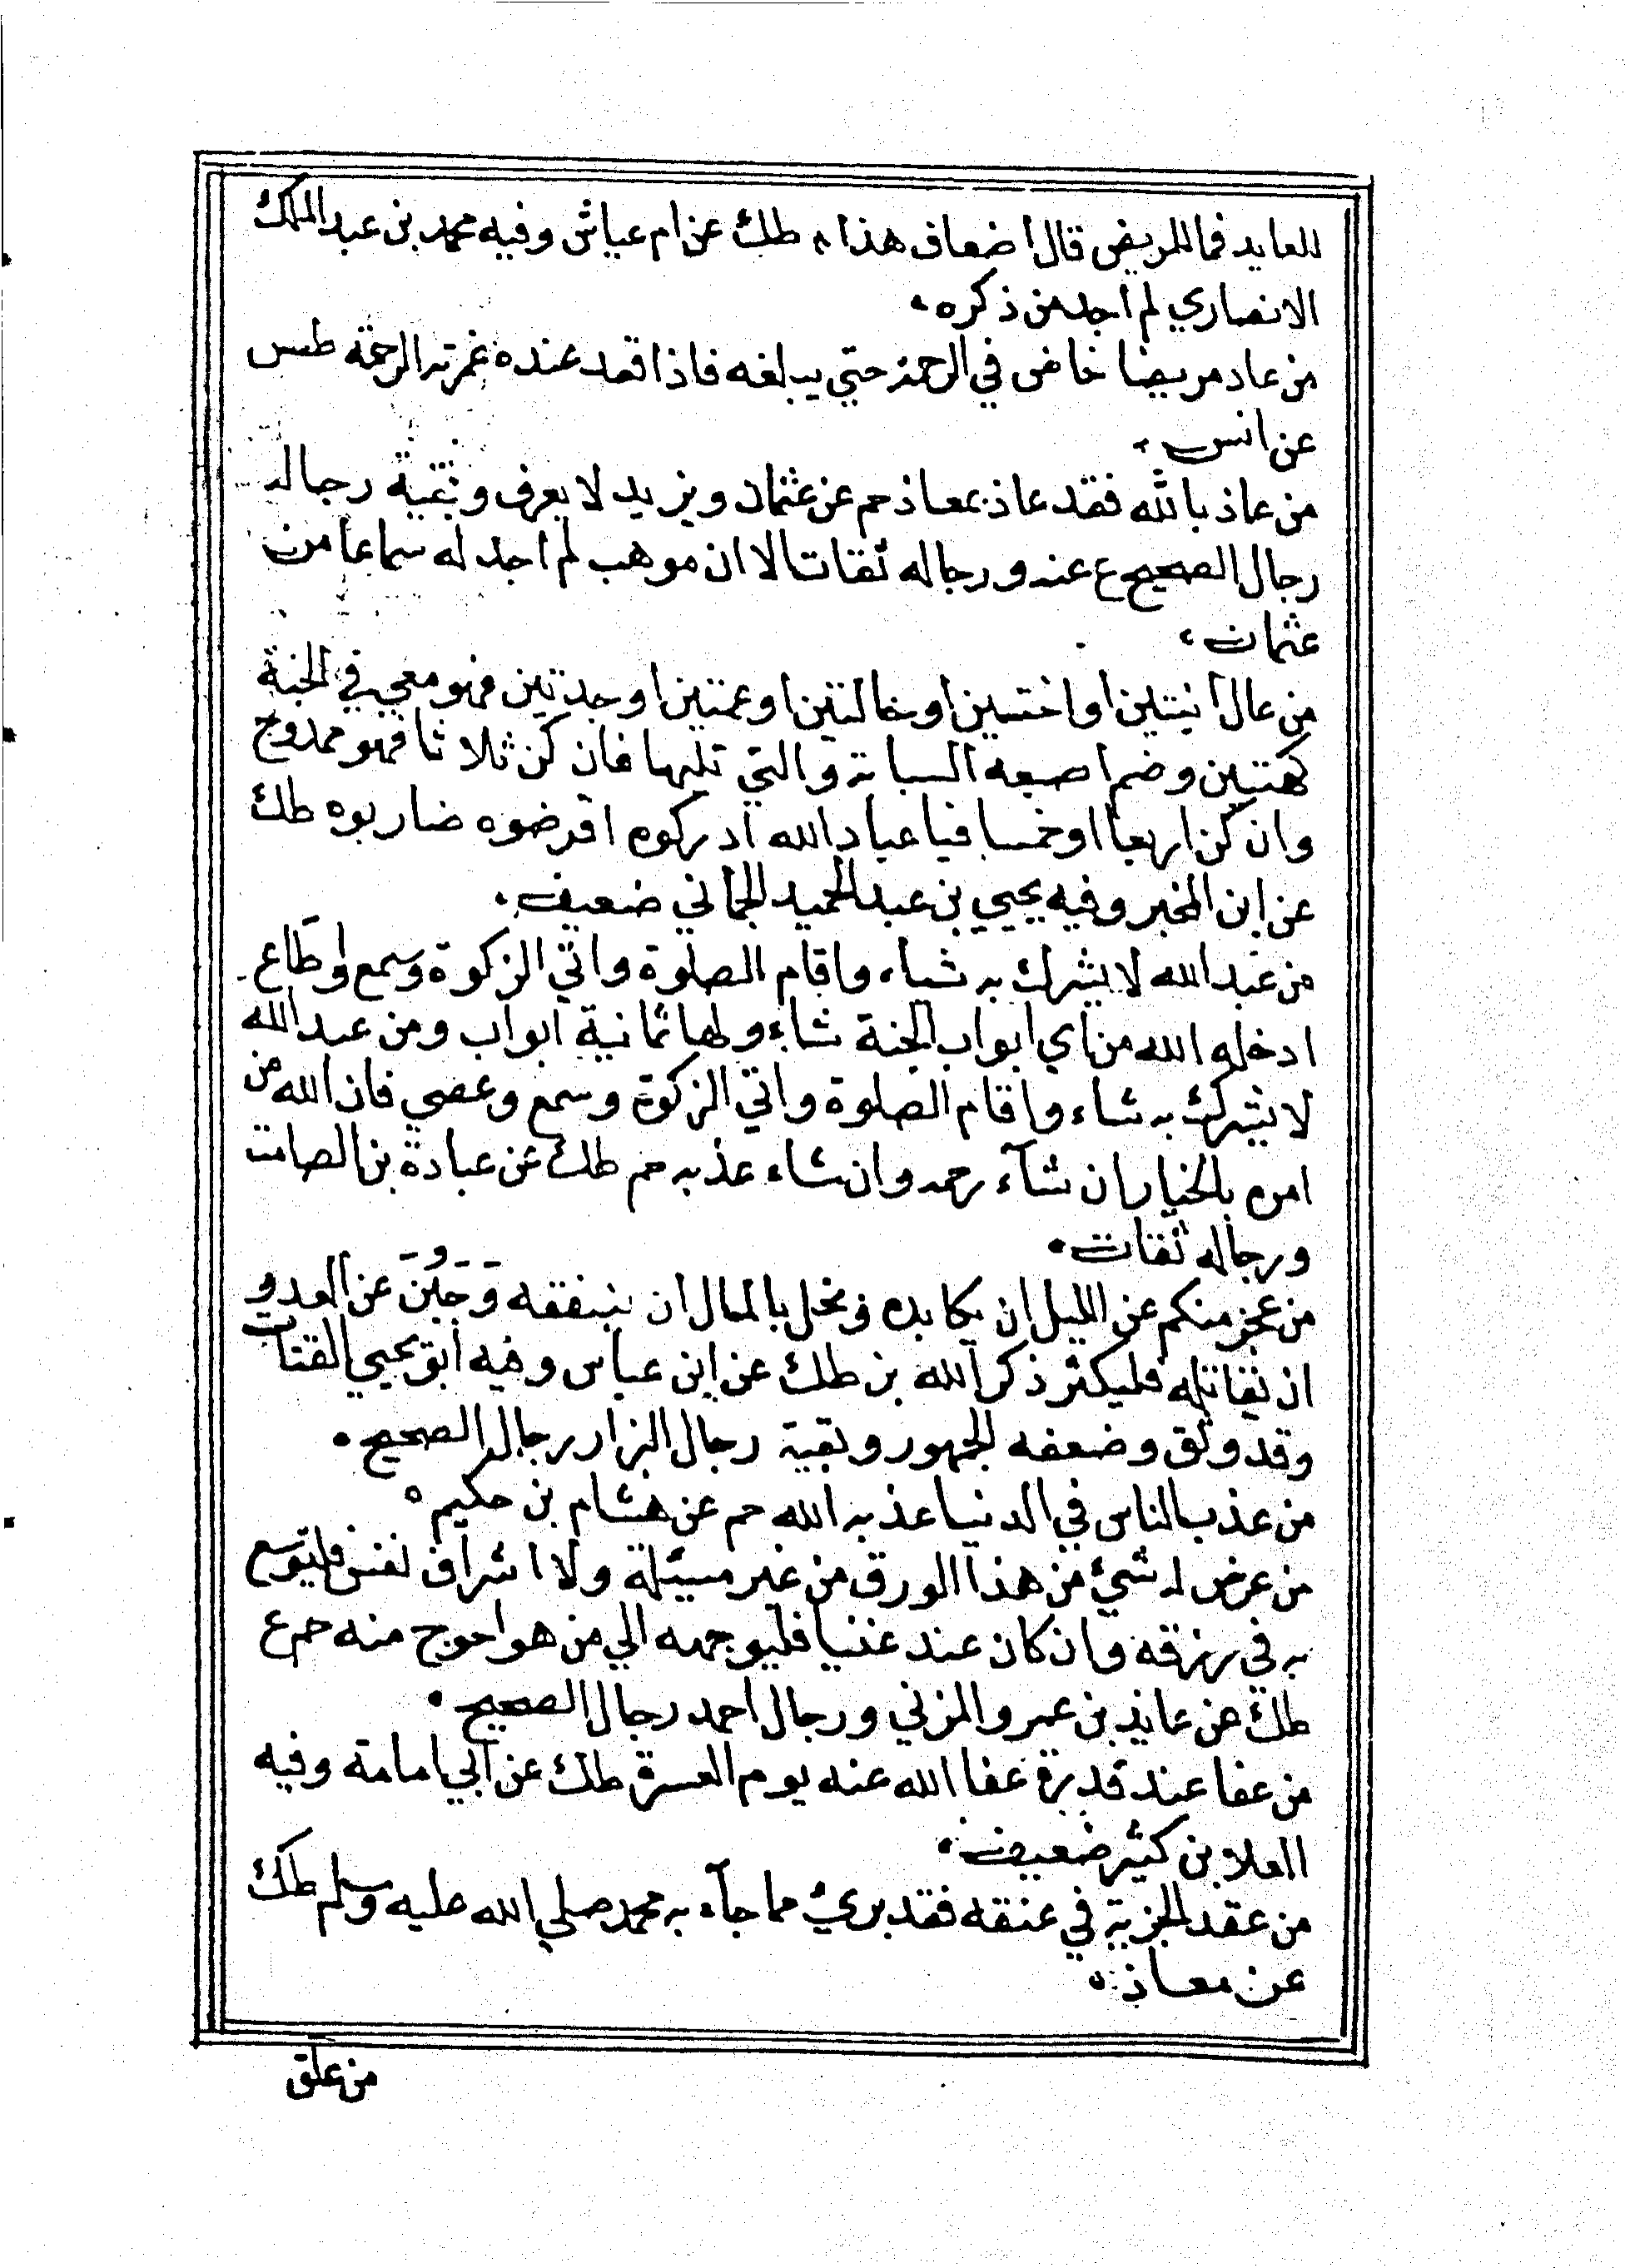 للعايد فما للمريض قال اضعاف هذا، طك عن ام عياش وفيه محمد بن عبد الملك
الانصاري لم اجد من ذكره،
من عاد مريضا خاض في الرحمة حتي يبلغه فاذا قعد عنده غمرته الرحمة طس
عن انس،
من عاذ بالله فقد عاذ بمعاذ حم عن عثمان ويزيد لا يعرف وبقية رجاله
رجال الصحيح ع عنه ورجاله ثقات الا ان موهب لم اجد له سماعا من
عثمان،
من عال ابنتين او اختين او خالتين او عمتين او جدتين فهو معي في الجنة
كهتين وضم اصبعه السبابة والتي تليها فان كن ثلاثا فهو ممدوح
وان كن اربعا او خمسا فيا عباد الله ادركوه اقرضوه ضاربوه طك
عن ابن المخبر وفيه يحيي بن عبد الحميد الحماني ضعيف،
من عبد الله لا يشرك به شاء واقام الصلوة واتي الزكوة وسمع واطاع
ادخله الله من اي ابواب الجنة شاء ولها ثمانية ابواب ومن عبد الله
لا يشرك به شاء واقام الصلوة واتي الزكوة وسمع وعصي فان الله من
امره بالخيار ان شآء رحمه وان شاء عذبه حم طك عن عبادة بن الصامت
ورجاله ثقات،
من عجز منكم عن الليل ان يكابده وبخل بالمال ان ينفقه وَجَبُنَ عن العدو
ان يقاتله فليكثر ذكر الله بز طك عن ابن عباس وفيه ابو يحيي القتات
وقد وثق وضعفه الجمهور وبقية رجال البزار رجال الصحيح،
من عذب الناس في الدنيا عذبه الله حم عن هشام بن حكيم،
من عرض له شيئ من هذا الورق من غير مسئلة ولا اشراف نفس فليتوسع
به في رزقه وان كان عند غنيا فليوجهه الي من هو احوج منه حم ع
طك عن عايذ بن عمرو المزني ورجال احمد رجال الصحيح،
من عفا عند قدرة عفا الله عنه يوم العسرة طك عن ابي امامة وفيه
العلا بن كثير ضعيف،
من عقد الجزية في عنقه فقد بريئ مما جآء به محمد صلي الله عليه وسلم طك
عن معاذ،
من علق